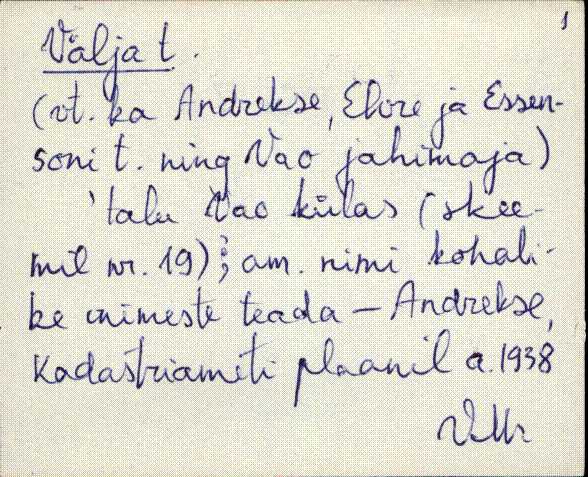 1
Välja t.
(vt. ka Andrekse, Elvre ja Essen-
soni t. ning Vao jahimaja)
'talu Vao külas (skee-
mil nr. 19); am. nimi kohali-
ke inimeste teada – Andrekse,
Kadastriameti plaanil a. 1938